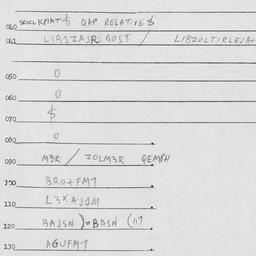 060 QAP RELATIVE $
061 LIB1ZAJR.GOST / LIBZOLTIRLEJB+
050 0
060 0
070 $
080 0
090 M3R / ZOLM3R QEMPH
100 BRO+FM7
110 L3XAJ1M
120 BAJSN )=BDSN (117
130 AGUFM7